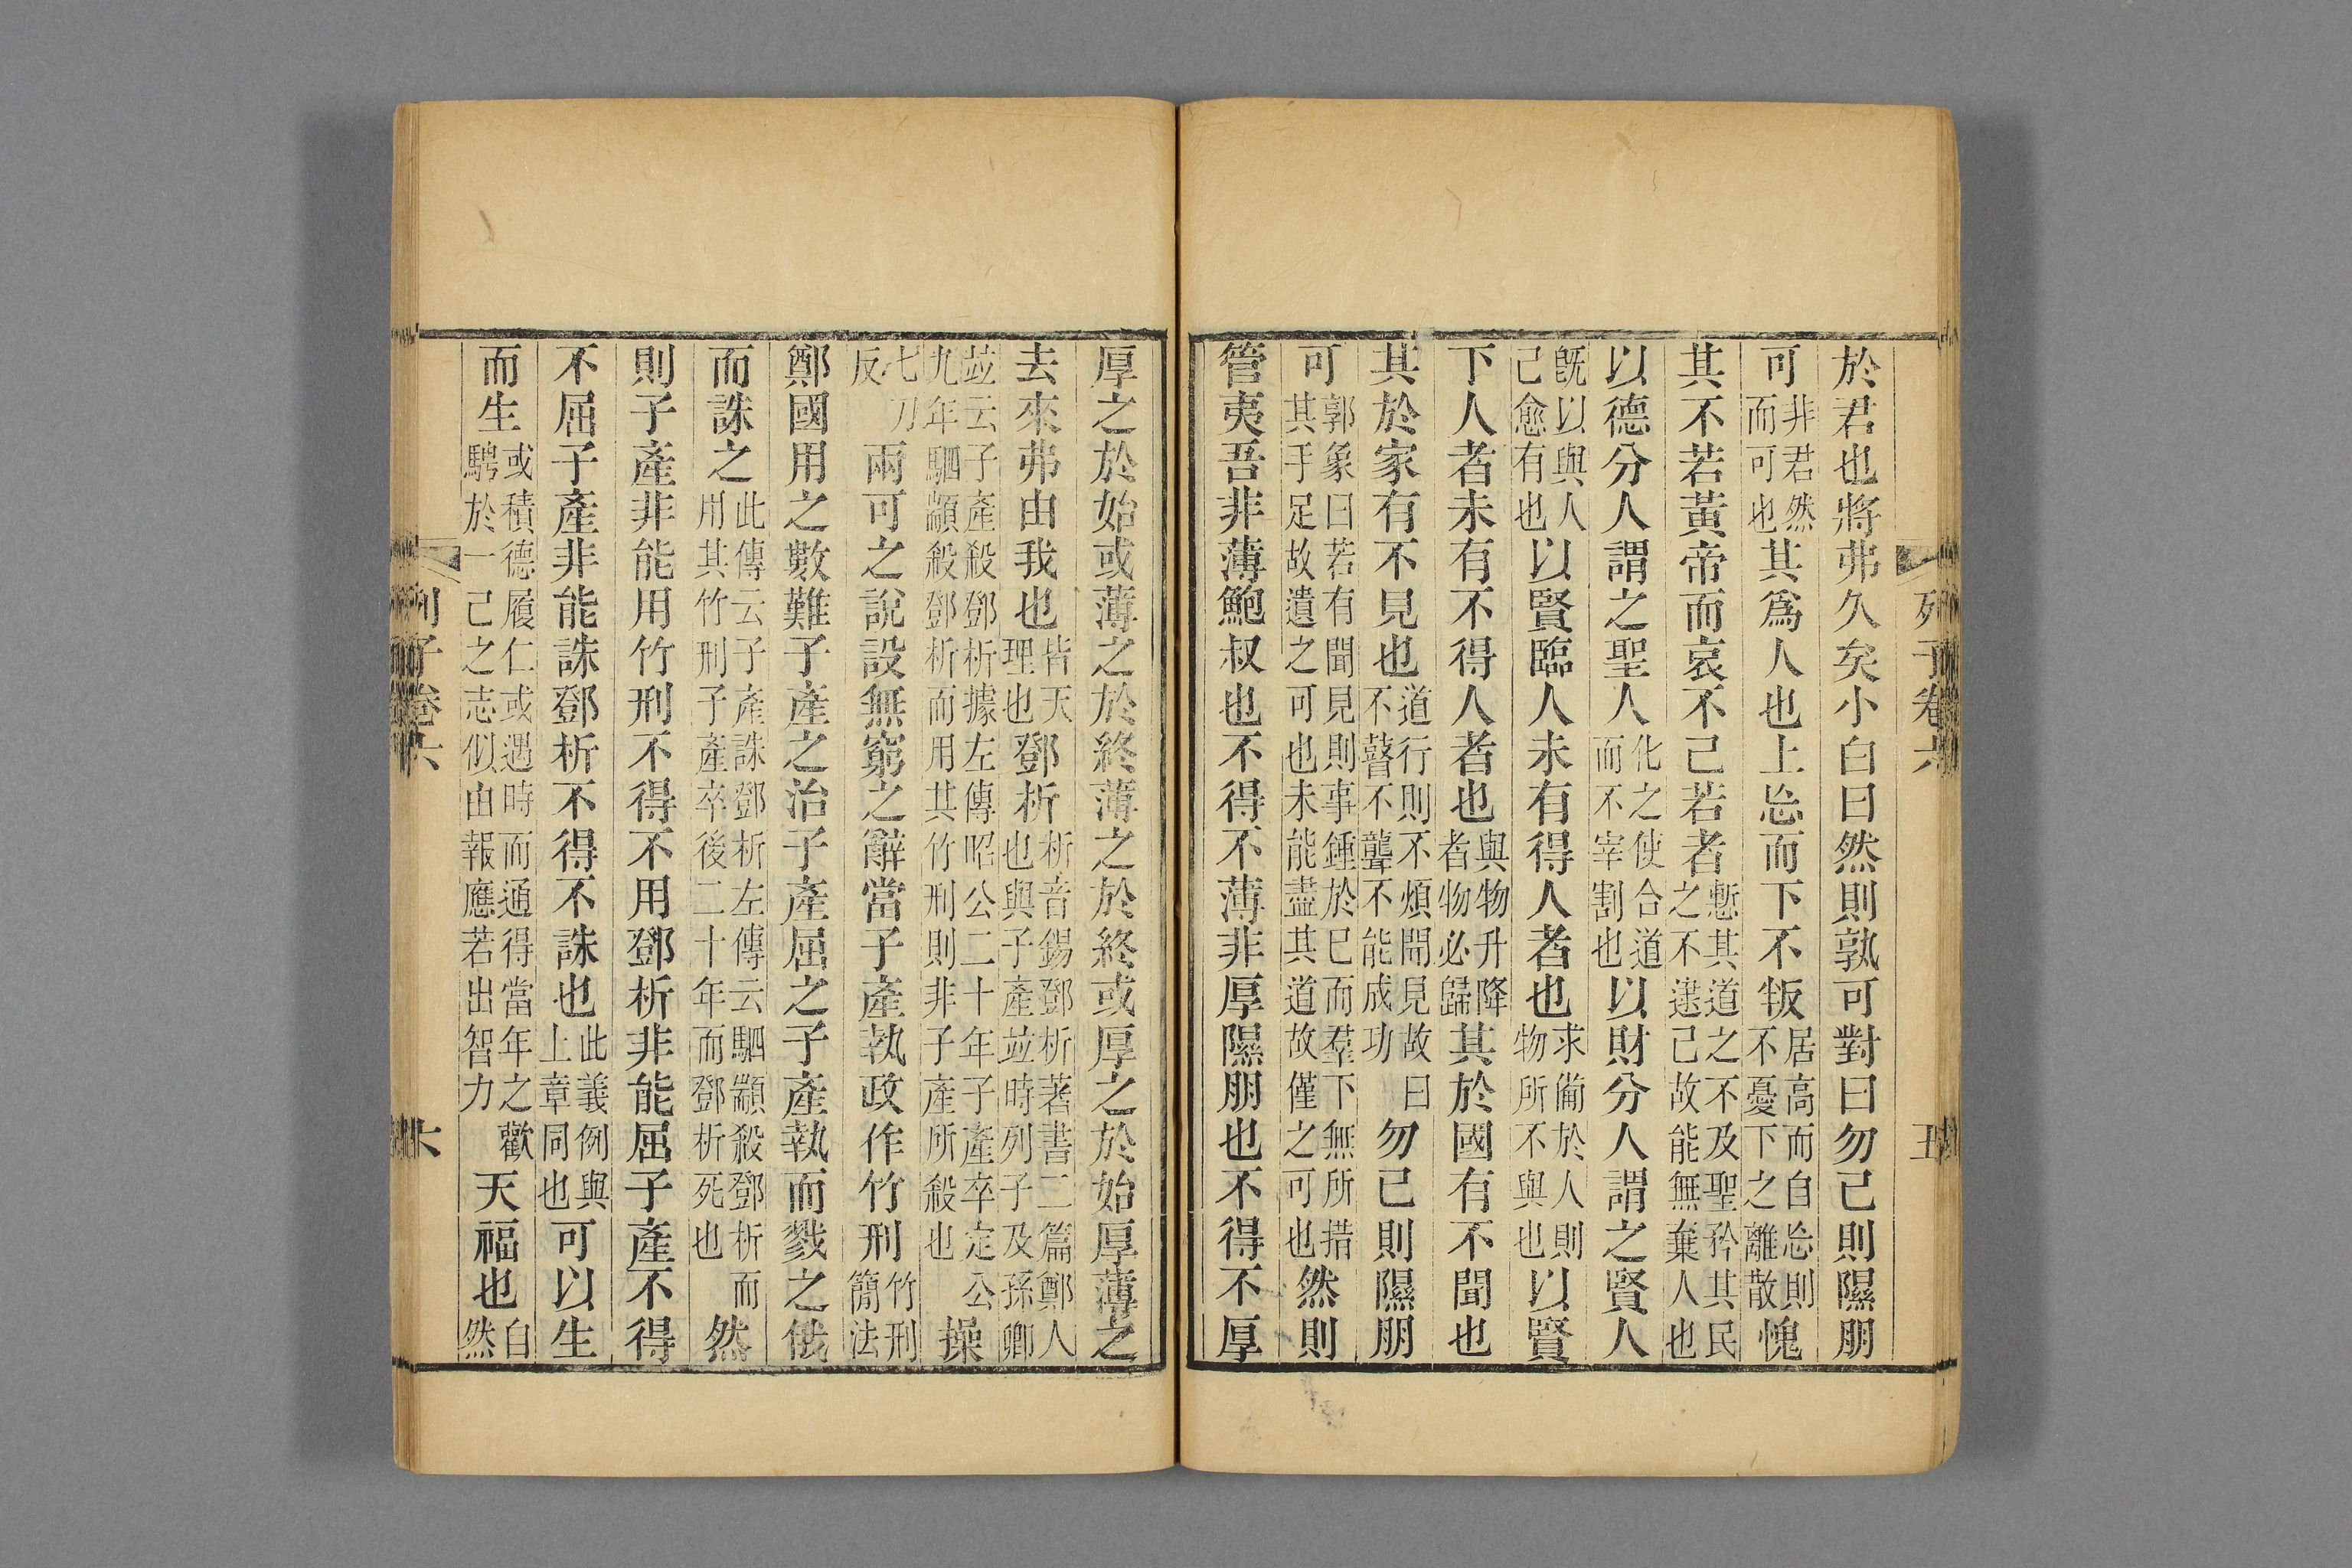 列子卷六
五
於君也將弗久矣小白曰然則孰可對曰勿已則隰朋
可非君然而可也其爲人也上忘而下不叛居高而自忘則不憂下之離散愧
其不若黃帝而哀不己若者慙其道之不及聖矜其民之不逮己故能無棄人也
以德分人謂之聖人化之使合道而不宰割也以財分人謂之賢人
旣以與人己愈有也以賢臨人未有得人者也求備於人則物所不與也以賢
下人者未有不得人者也與物升降者物必歸其於國有不聞也
其於家有不見也道行則不煩聞見故曰不瞽不聾不能成功勿已則隰朋
可郭象曰若有聞見則事鍾於巳而羣下無所措其手足故遺之可也未能盡其道故僅之可也然則
管夷吾非薄鮑叔也不得不薄非厚隰朋也不得不厚
厚之於始或薄之於終薄之於終或厚之於始厚薄之
去來弗由我也皆天理也鄧析析音錫鄧析著書二篇鄭人也與子產竝時列子及孫卿
竝云子產殺鄧析據左傳昭公二十年子產卒定公九年駟顓殺鄧析而用其竹刑則非子產所殺也操
七刀反兩可之說設無窮之辭當子產執政作竹刑竹刑簡法
鄭國用之數難子產之治子產屈之子產執而戮之俄
而誅之此傳云子產誅鄧析左傳云駟顓殺鄧析而用其竹刑子產卒後二十年而鄧析死也然
則子產非能用竹刑不得不用鄧析非能屈子產不得
不屈子產非能誅鄧析不得不誅也此義例與上章同也可以生
而生或積德履仁或遇時而通得當年之歡騁於一己之志似由報應若出智力天福也自然
列子卷六
六